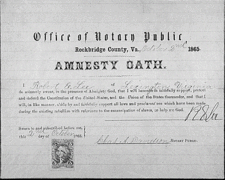 Office of Notary Public,
Rockbridge County, Va., October 2d 1865.
AMNESTY OATH.
I Robert E. Lee of Lexington Virginia
do solemnly swear, in the presence of Almighty God, that I will henceforth faithfully support, protect
and defend the Constitution of the United States, and the Union of the States thereunder, and that I
will, in like manner, abide by and faithfully support all laws and proclamations which have been made
during the existing rebellion with reference to the emancipation of slaves, so help me God.
R E Lee
Sworn to and subscribed before me,
this 2d day of October 1865.
Notary Public.